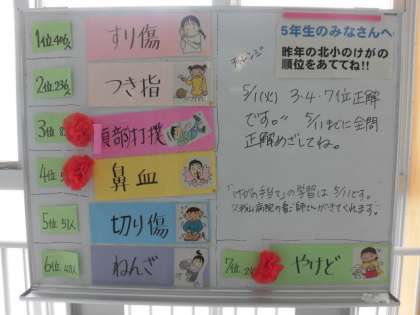 5年生のみなさんへ
昨年の北小のけがの
順位をあててね!!
チャレンジ
1位 406人 すり傷
2位 236人 つき指
3位 頭部打撲
4位 鼻血
5位 51人 切り傷
6位 ねんざ
7位 やけど
5/1(火) 3・4・7位正解
です。 5/11までに全問
正解めざしてね。
「けがの手当て」の学習は 5/11です。